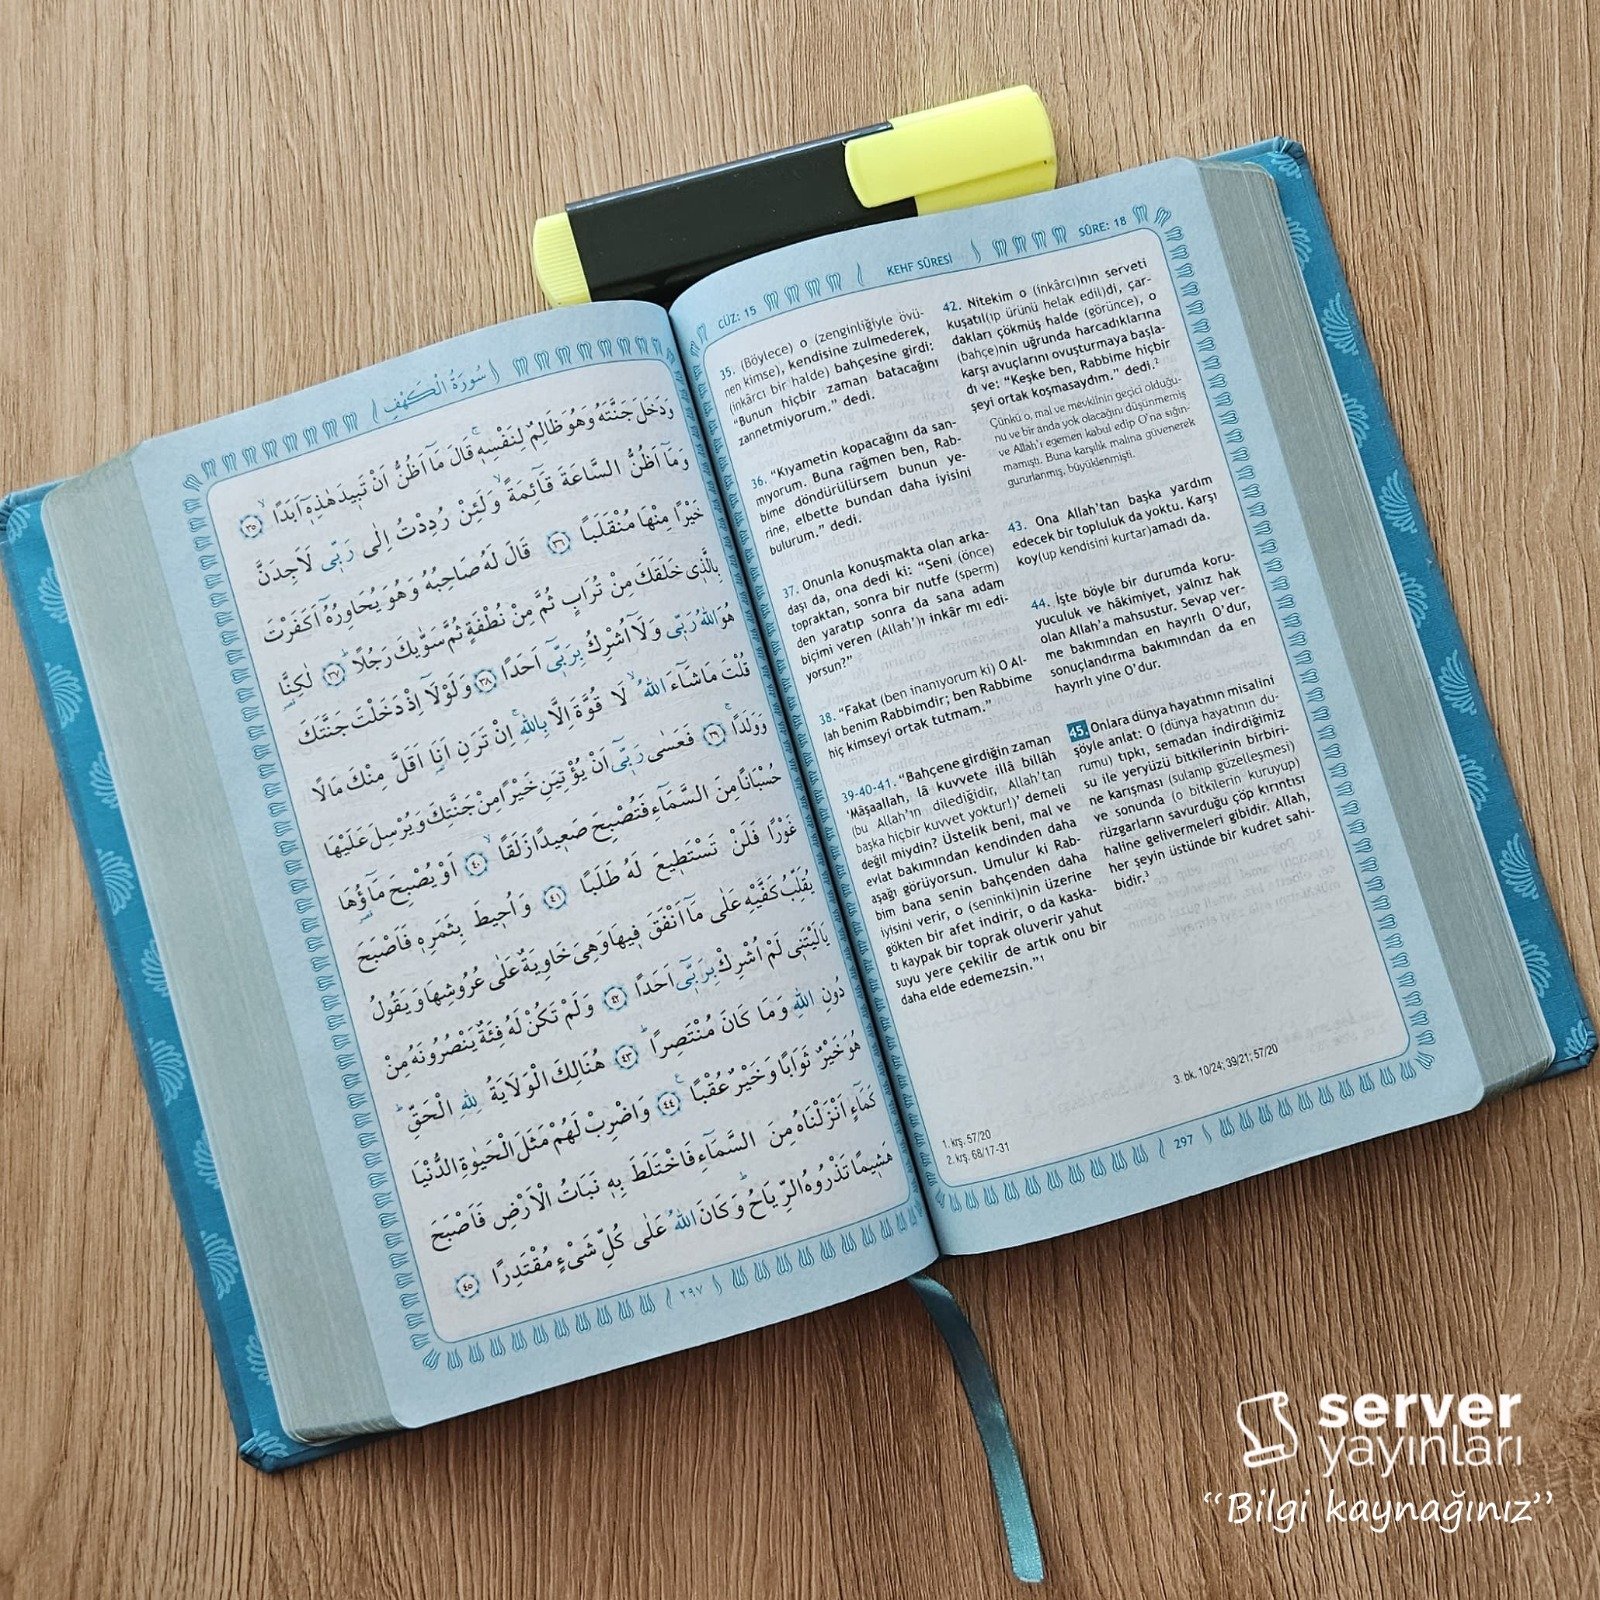 سُورَةُ الْكَهْفِ
وَدَخَلَ جَنَّتَهُ وَهُوَ ظَالِمٌ لِنَفْسِهٖۚ قَالَ مَٓا اَظُنُّ اَنْ تَب۪يدَ هٰذِه۪ٓ اَبَدًاۙ ﴿٣٥﴾
وَمَٓا اَظُنُّ السَّاعَةَ قَٓائِمَةًۙ وَلَئِنْ رُدِدْتُ اِلٰى رَبّ۪ى لَاَجِدَنَّ
خَيْرًا مِنْهَا مُنْقَلَبًا ﴿٣٦﴾ قَالَ لَهُ صَاحِبُهُ وَهُوَ يُحَاوِرُهُٓ اَكَفَرْتَ
بِالَّذ۪ى خَلَقَكَ مِنْ تُرَابٍ ثُمَّ مِنْ نُطْفَةٍ ثُمَّ سَوّٰيكَ رَجُلًاۜ ﴿٣٧﴾ لٰكِنَّا۬
هُوَ اللّٰهُ رَبّ۪ى وَلَٓا اُشْرِكُ بِرَبّ۪ٓى اَحَدًا ﴿٣٨﴾ وَلَوْلَٓا اِذْ دَخَلْتَ جَنَّتَكَ
قُلْتَ مَا شَٓاءَ اللّٰهُۙ لَا قُوَّةَ اِلَّا بِاللّٰهِۚ اِنْ تَرَنِ اَنَا۬ اَقَلَّ مِنْكَ مَالًا
وَوَلَدًاۚ ﴿٣٩﴾ فَعَسٰى رَبّ۪ٓى اَنْ يُؤْتِيَنِ خَيْرًا مِنْ جَنَّتِكَ وَيُرْسِلَ عَلَيْهَا
حُسْبَانًا مِنَ السَّمَٓاءِ فَتُصْبِحَ صَع۪يدًا زَلَقًاۙ ﴿٤٠﴾ اَوْ يُصْبِحَ مَٓاؤُ۬هَا
غَوْرًا فَلَنْ تَسْتَط۪يعَ لَهُ طَلَبًا ﴿٤١﴾ وَاُح۪يطَ بِثَمَرِه۪ فَاَصْبَحَ
يُقَلِّبُ كَفَّيْهِ عَلٰى مَٓا اَنْفَقَ ف۪يهَا وَهِىَ خَاوِيَةٌ عَلٰى عُرُوشِهَا وَيَقُولُ
يَالَيْتَن۪ى لَمْ اُشْرِكْ بِرَبّ۪ٓى اَحَدًا ﴿٤٢﴾ وَلَمْ تَكُنْ لَهُ فِئَةٌ يَنْصُرُونَهُ مِنْ
دُونِ اللّٰهِ وَمَا كَانَ مُنْتَصِرًاۜ ﴿٤٣﴾ هُنَالِكَ الْوَلَايَةُ لِلّٰهِ الْحَقِّۜ
هُوَ خَيْرٌ ثَوَابًا وَخَيْرٌ عُقْبًاۚ ﴿٤٤﴾ وَاضْرِبْ لَهُمْ مَثَلَ الْحَيٰوةِ الدُّنْيَا
كَمَٓاءٍ اَنْزَلْنَاهُ مِنَ السَّمَٓاءِ فَاخْتَلَطَ بِه۪ نَبَاتُ الْاَرْضِ فَاَصْبَحَ
هَش۪يمًا تَذْرُوهُ الرِّيَاحُۜ وَكَانَ اللّٰهُ عَلٰى كُلِّ شَىْءٍ مُقْتَدِرًا ﴿٤٥﴾
٢٩٧
CÜZ: 15
KEHF SÛRESİ
SÛRE: 18
35. (Böylece) o (zenginliğiyle övü-
nen kimse), kendisine zulmederek,
(inkârcı bir halde) bahçesine girdi:
"Bunun hiçbir zaman batacağını
zannetmiyorum." dedi.
36. "Kıyametin kopacağını da san-
mıyorum. Buna rağmen ben, Rab-
bime döndürülürsem bunun ye-
rine, elbette bundan daha iyisini
bulurum." dedi.
37. Onunla konuşmakta olan arka-
daşı da, ona dedi ki: "Seni (önce)
topraktan, sonra bir nutfe (sperm)
den yaratıp sonra da sana adam
biçimi veren (Allah')ı inkâr mı edi-
yorsun?"
38. "Fakat (ben inanıyorum ki) O Al-
lah benim Rabbimdir; ben Rabbime
hiç kimseyi ortak tutmam."
39-40-41. "Bahçene girdiğin zaman
'Mâşaallah, lâ kuvvete illâ billâh
(bu Allah'ın dilediğidir, Allah'tan
başka hiçbir kuvvet yoktur!)' demeli
değil miydin? Üstelik beni, mal ve
evlat bakımından kendinden daha
aşağı görüyorsun. Umulur ki Rab-
bim bana senin bahçenden daha
iyisini verir, o (seninki)nin üzerine
gökten bir afet indirir, o da kaska-
tı kaypak bir toprak oluverir yahut
suyu yere çekilir de artık onu bir
daha elde edemezsin."¹
42. Nitekim o (inkârcı)nın serveti
kuşatıl(ıp ürünü helak edil)di, çar-
dakları çökmüş halde (görünce), o
(bahçe)nin uğrunda harcadıklarına
karşı avuçlarını ovuşturmaya başla-
dı ve: "Keşke ben, Rabbime hiçbir
şeyi ortak koşmasaydım." dedi.²
Çünkü o, mal ve mevkîinin geçici olduğu-
nu ve bir anda yok olacağını düşünmemiş
ve Allah'ı egemen kabul edip O'na sığın-
mamıştı. Buna karşılık malına güvenerek
gururlanmış, büyüklenmişti.
43. Ona Allah'tan başka yardım
edecek bir topluluk da yoktu. Karşı
koy(up kendisini kurtar)amadı da.
44. İşte böyle bir durumda koru-
yuculuk ve hâkimiyet, yalnız hak
olan Allah'a mahsustur. Sevap ver-
me bakımından en hayırlı O'dur,
sonuçlandırma bakımından da en
hayırlı yine O'dur.
45. Onlara dünya hayatının misalini
şöyle anlat: O (dünya hayatının du-
rumu) tıpkı, semadan indirdiğimiz
su ile yeryüzü bitkilerinin birbiri-
ne karışması (sulanıp güzelleşmesi)
ve sonunda (o bitkilerin kuruyup)
rüzgarların savurduğu çöp kırıntısı
haline gelivermeleri gibidir. Allah,
her şeyin üstünde bir kudret sahi-
bidir.³
1. krş. 57/20
2. krş. 68/17-31
3. bk. 10/24; 39/21; 57/20
297
server
yayınları
"Bilgi kaynağınız"